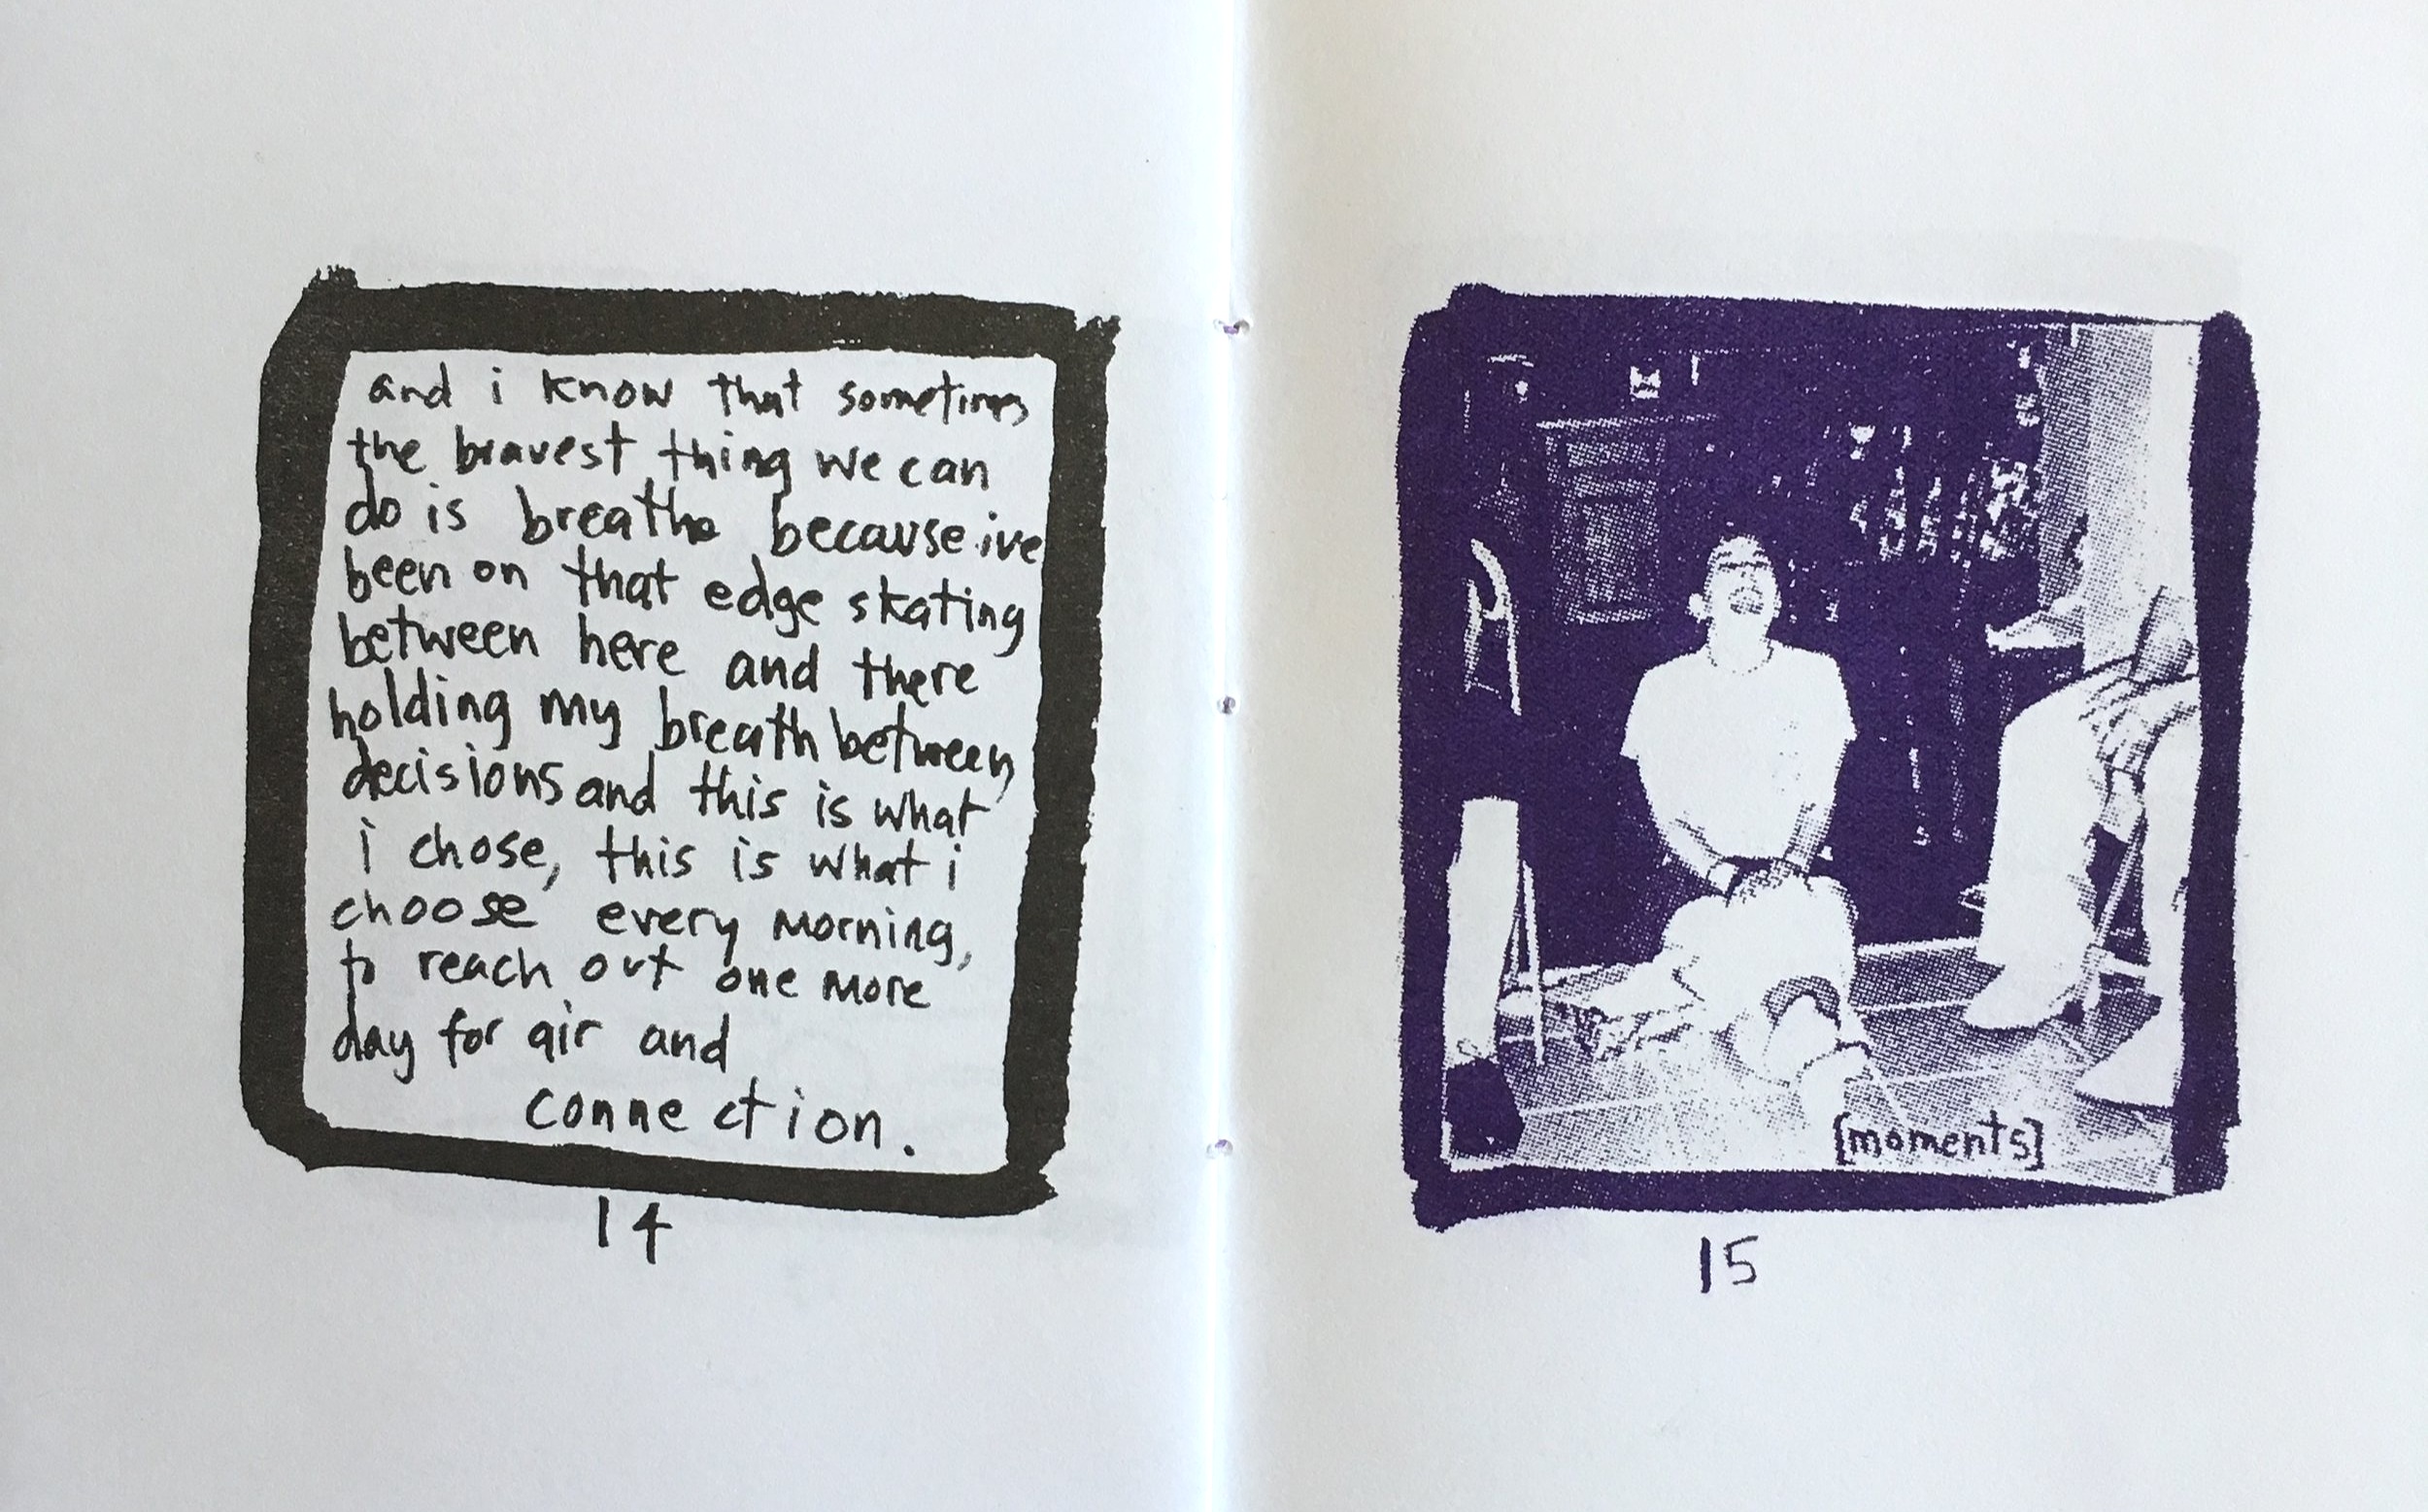 and i know that sometimes
the bravest thing we can
do is breathe because ive
been on that edge skating
between here and there
holding my breath between
decisions and this is what
i chose, this is what i
choose every morning,
to reach out one more
day for air and
connection.
14
[moments]
15